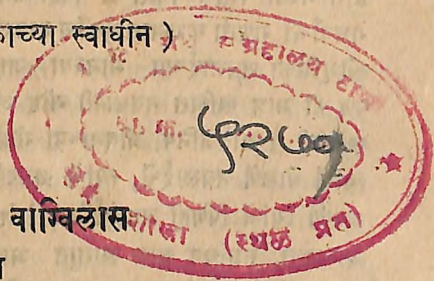 च्या स्वाधीन )
ग्रंथालय
दा. क्र.
५२७७
वाग्विलास
शाखा (स्थळ प्रत)